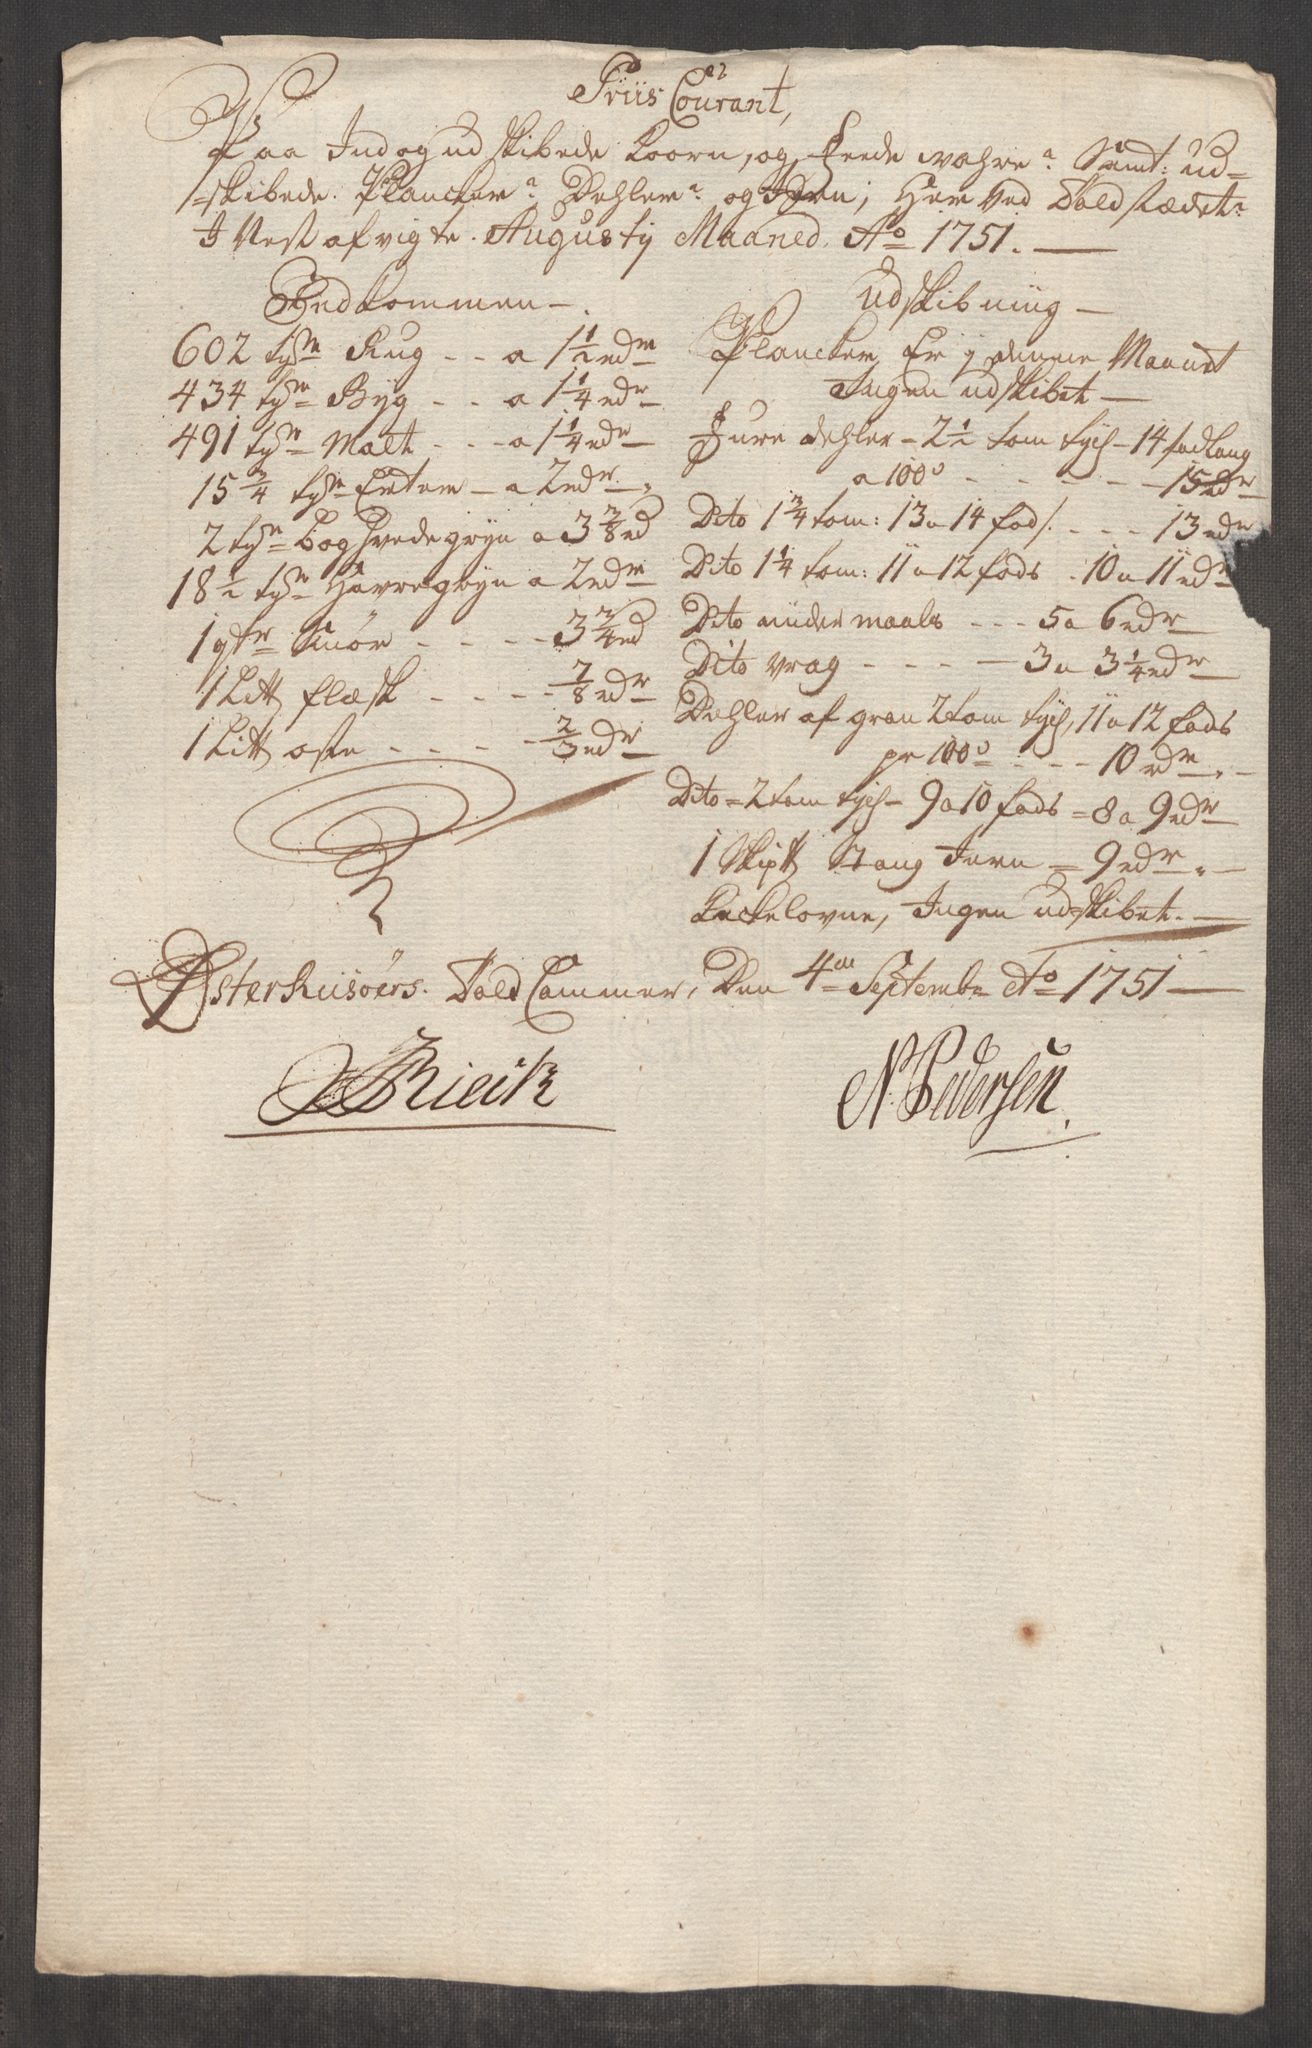 Priis Courant,
Paa Ind og ud skibede Koorn, og Feede wahre Samt: ud=
=skibede Plancker Dehler og Jern; Her Ved Told stædet
I Nest afvigte Augusty Maaned. Ao 1751.
Indkommen
602 tdr Rug - - a 1 1/2 rdr
434 tdr Byg - - a 1 1/4 rdr
491 tdr Malt - - - a 1 1/4 rdr
15 3/4 tdr Erter - a 2 rdr
2 tdr Boghvedegryn a 3 3/8 rd
18 1/2 tdr Havregryn a 2 rdr
1 qtr Smør - - - - 3 3/4 rd
1 Litt flæsk - - - - 7/8 rdr
1 Litt oste - - - - - 2/3 rdr
Udskibning
Plancker Er j denne Maanet
Ingen udskibet
Fure dehler - 2 1/2 tom tych - 14 fod lang
a 100d - - - - - - 15 rdr
Dito 1 3/4 tom: 13 a 14 fods - - - 13 rdr
Dito 1 1/4 tom: 11 a 12 fods - 10 a 11 rdr
Dito under maals - - - 5 a 6 rdr
Dito vrag - - - - - 3 a 3 1/4 rdr
Dehler af gran 2 tom tych, 11 a 12 fods
pr 100d - - - - 10 rdr
Dito = 2 tom tych - 9 a 10 fods = 8 a 9 rdr
1 Skipt Stang Jern = 9 rdr
Kackelovne, Ingen udskibet.
Øster Riisøers Told Cammer, Den 4de Septembr Ao 1751
N. Pedersen